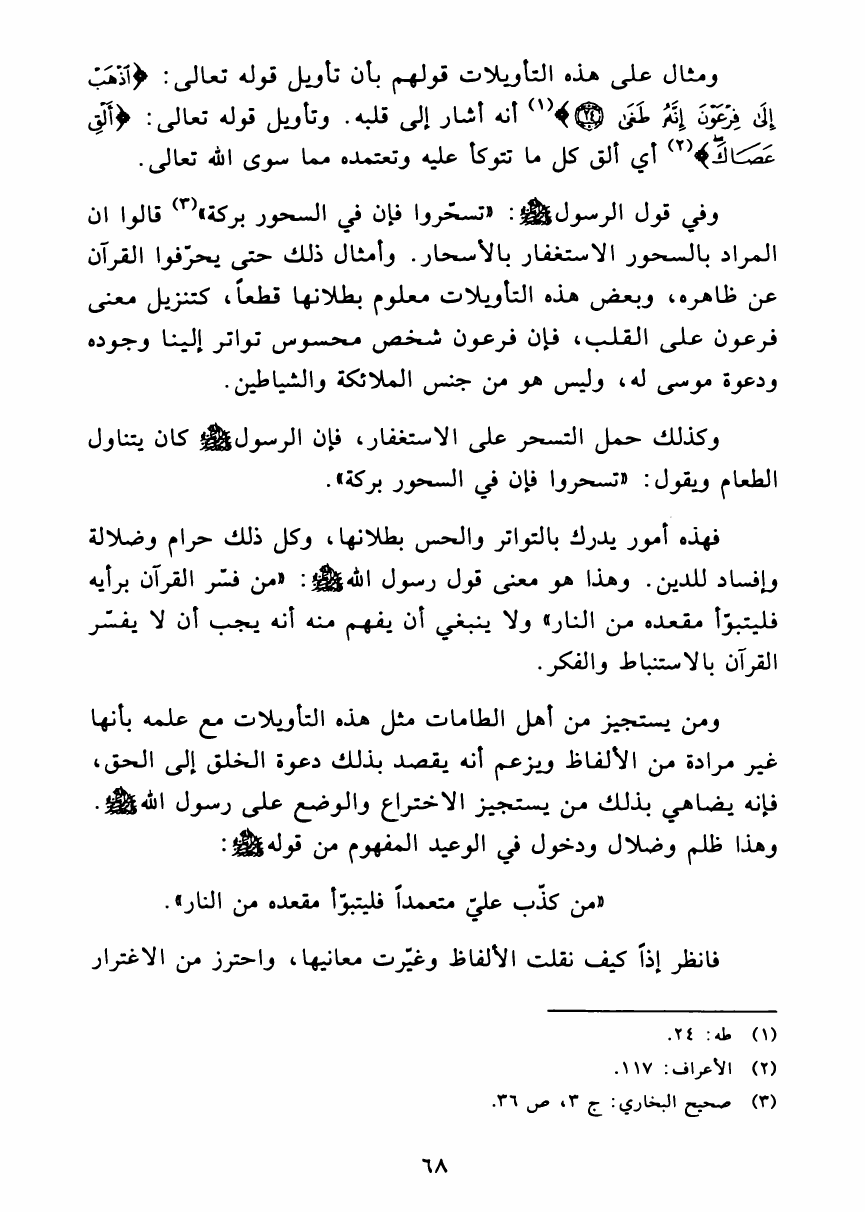 ومثال على هذه التأويلات قولهم بأن تأويل قوله تعالى: ﴿ٱذْهَبْ
إِلَىٰ فِرْعَوْنَ إِنَّهُ طَغَىٰ ۝٢٤﴾(١) أنه أشار إلى قلبه. وتأويل قوله تعالى: ﴿أَلْقِ
عَصَاكَ﴾(٢) أي ألق كل ما تتوكأ عليه وتعتمده مما سوى الله تعالى.
وفي قول الرسول ﷺ: «تسحّروا فإن في السحور بركة»(٣) قالوا ان
المراد بالسحور الاستغفار بالأسحار. وأمثال ذلك حتى يحرّفوا القرآن
عن ظاهره، وبعض هذه التأويلات معلوم بطلانها قطعاً، كتنزيل معنى
فرعون على القلب، فإن فرعون شخص محسوس تواتر إلينا وجوده
ودعوة موسى له، وليس هو من جنس الملائكة والشياطين.
وكذلك حمل التسحر على الاستغفار، فإن الرسول ﷺ كان يتناول
الطعام ويقول: «تسحروا فإن في السحور بركة».
فهذه أمور يدرك بالتواتر والحس بطلانها، وكل ذلك حرام وضلالة
وإفساد للدين. وهذا هو معنى قول رسول الله ﷺ: «من فسّر القرآن برأيه
فليتبوّأ مقعده من النار» ولا ينبغي أن يفهم منه أنه يجب أن لا يفسّر
القرآن بالاستنباط والفكر.
ومن يستجيز من أهل الطامات مثل هذه التأويلات مع علمه بأنها
غير مرادة من الألفاظ ويزعم أنه يقصد بذلك دعوة الخلق إلى الحق،
فإنه يضاهي بذلك من يستجيز الاختراع والوضع على رسول الله ﷺ.
وهذا ظلم وضلال ودخول في الوعيد المفهوم من قوله ﷺ:
«من كذّب عليّ متعمداً فليتبوّأ مقعده من النار».
فانظر إذاً كيف نقلت الألفاظ وغيّرت معانيها، واحترز من الاغترار
(١) طه: ٢٤.
(٢) الأعراف: ١١٧.
(٣) صحيح البخاري: ج ٣، ص ٣٦.
٦٨